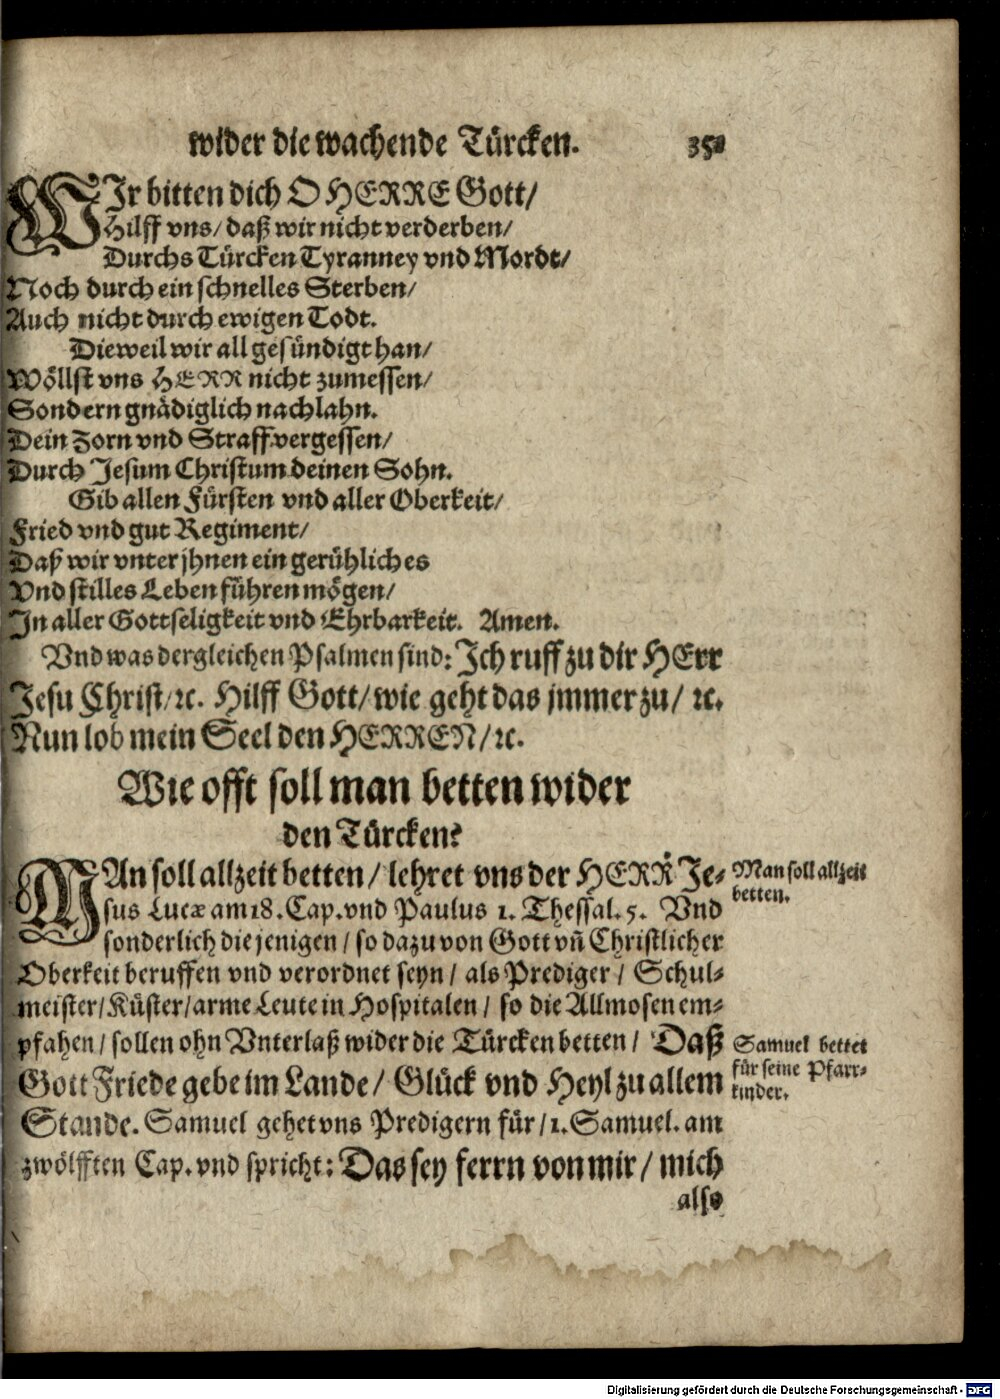 wider die wachende Türcken.
WIr bitten dich O HERRE Gott/
Hilff vns/ daß wir nicht verderben/
Durchs Türcken Tyranney vnd Mordt/
Noch durch ein schnelles Sterben/
Auch nicht durch ewigen Todt.
Dieweil wir all gesündigt han/
Wöllst vns HERR nicht zumessen/
Sondern gnädiglich nachlahn.
Dein Zorn vnd Straff vergessen/
Durch Jesum Christum deinen Sohn.
Gib allen Fürsten vnd aller Oberkeit/
Fried vnd gut Regiment/
Daß wir vnter jhnen ein gerühliches
Vnd stilles Leben führen mögen/
In aller Gottseligkeit vnd Ehrbarkeit. Amen.
Vnd was dergleichen Psalmen sind: Ich ruff zu dir HErr
Jesu Christ/ ꝛc. Hilff Gott/ wie geht das jmmer zu/ ꝛc.
Nun lob mein Seel den HERREN/ ꝛc.
Wie offt soll man betten wider
den Türcken?
MAn soll allzeit betten/ lehret vns der HERR Je-
sus Lucæ am 18. Cap. vnd Paulus 1. Thessal. 5. Vnd
sonderlich die jenigen/ so dazu von Gott vñ Christlicher
Oberkeit beruffen vnd verordnet seyn/ als Prediger/ Schul-
meister/ Küster/ arme Leute in Hospitalen/ so die Allmosen em-
pfahen/ sollen ohn Vnterlaß wider die Türcken betten/ Daß
Gott Friede gebe im Lande/ Glück vnd Heyl zu allem
Stande. Samuel gehet vns Predigern für/ 1. Samuel. am
zwölfften Cap. vnd spricht: Das sey ferrn von mir/ mich
also
Man soll allzeit
betten.
Samuel bettet
für seine Pfarr-
kinder.
Digitalisierung gefördert durch die Deutsche Forschungsgemeinschaft - DFG